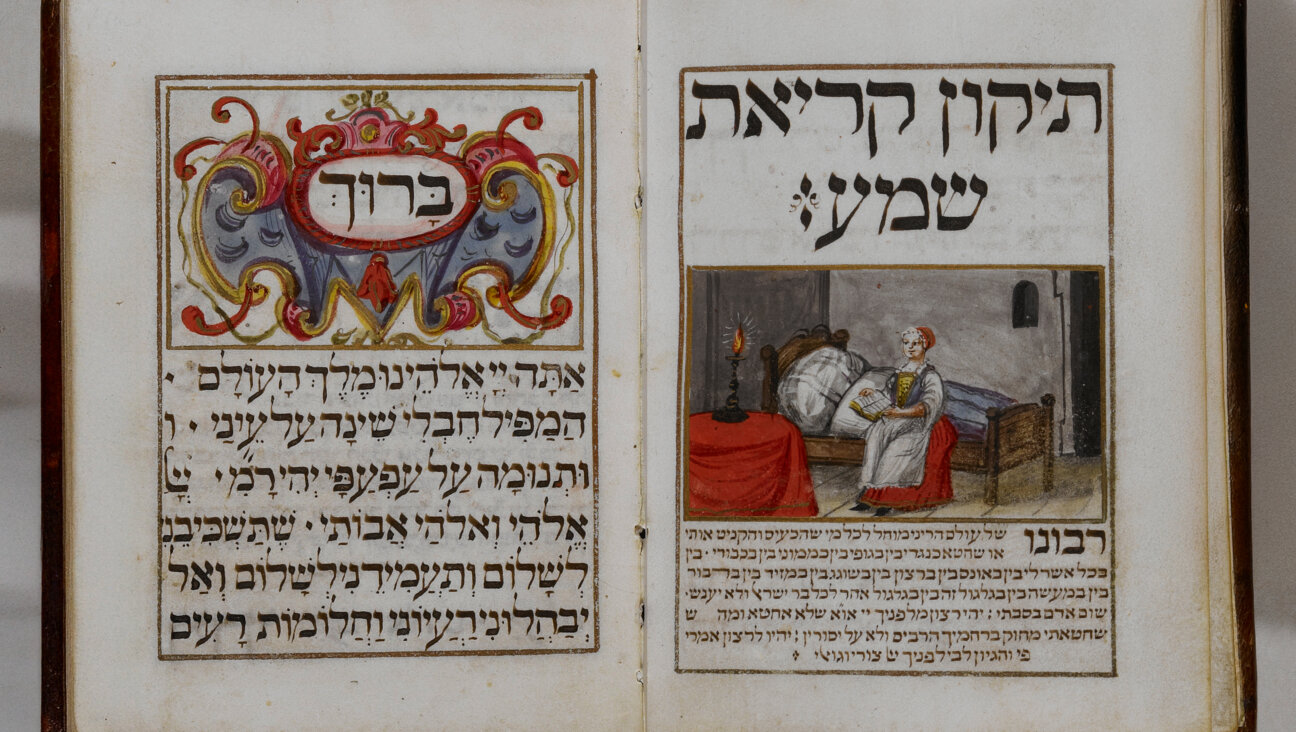 תיקון קריאת
שמע
רבונו של עולם הריני מוחל לכל מי שהכעיס והקניט אותי
או שחטא כנגדי בין בגופי בין בממוני בין בכבודי · בין
בכל אשר לי בין באונס בין ברצון בין בשוגג בין במזיד בין בדיבור
בין במעשה בין בגלגול זה בין בגלגול אחר לכל בר ישראל ולא יענש
שום אדם בסבתי : יהי רצון מלפניך יי שלא אחטא ומה ש
שחטאתי מחוק ברחמיך הרבים ולא על יסורין : יהיו לרצון אמרי
פי והגיון לבי לפניך צורי וגואלי
בָּרוּךְ :
אַתָּה יְיָ אֱלֹהֵינוּ מֶלֶךְ הָעוֹלָם ·
הַמַּפִּיל חֶבְלֵי שֵׁינָה עַל עֵינַי · וּ
וּתְנוּמָה עַל עַפְעַפָּי יְהִי רָ מִ שֶׁ
אֱלֹהַי וֵאלֹהֵי אֲבוֹתַי · שֶׁתַּשְׁכִּיבֵנִי
לְשָׁלוֹם וְתַעֲמִידֵנִי לְשָׁלוֹם וְאַל
יְבַהֲלוּנִי רַעְיוֹנַי וַחֲלוֹמוֹת רָעִים